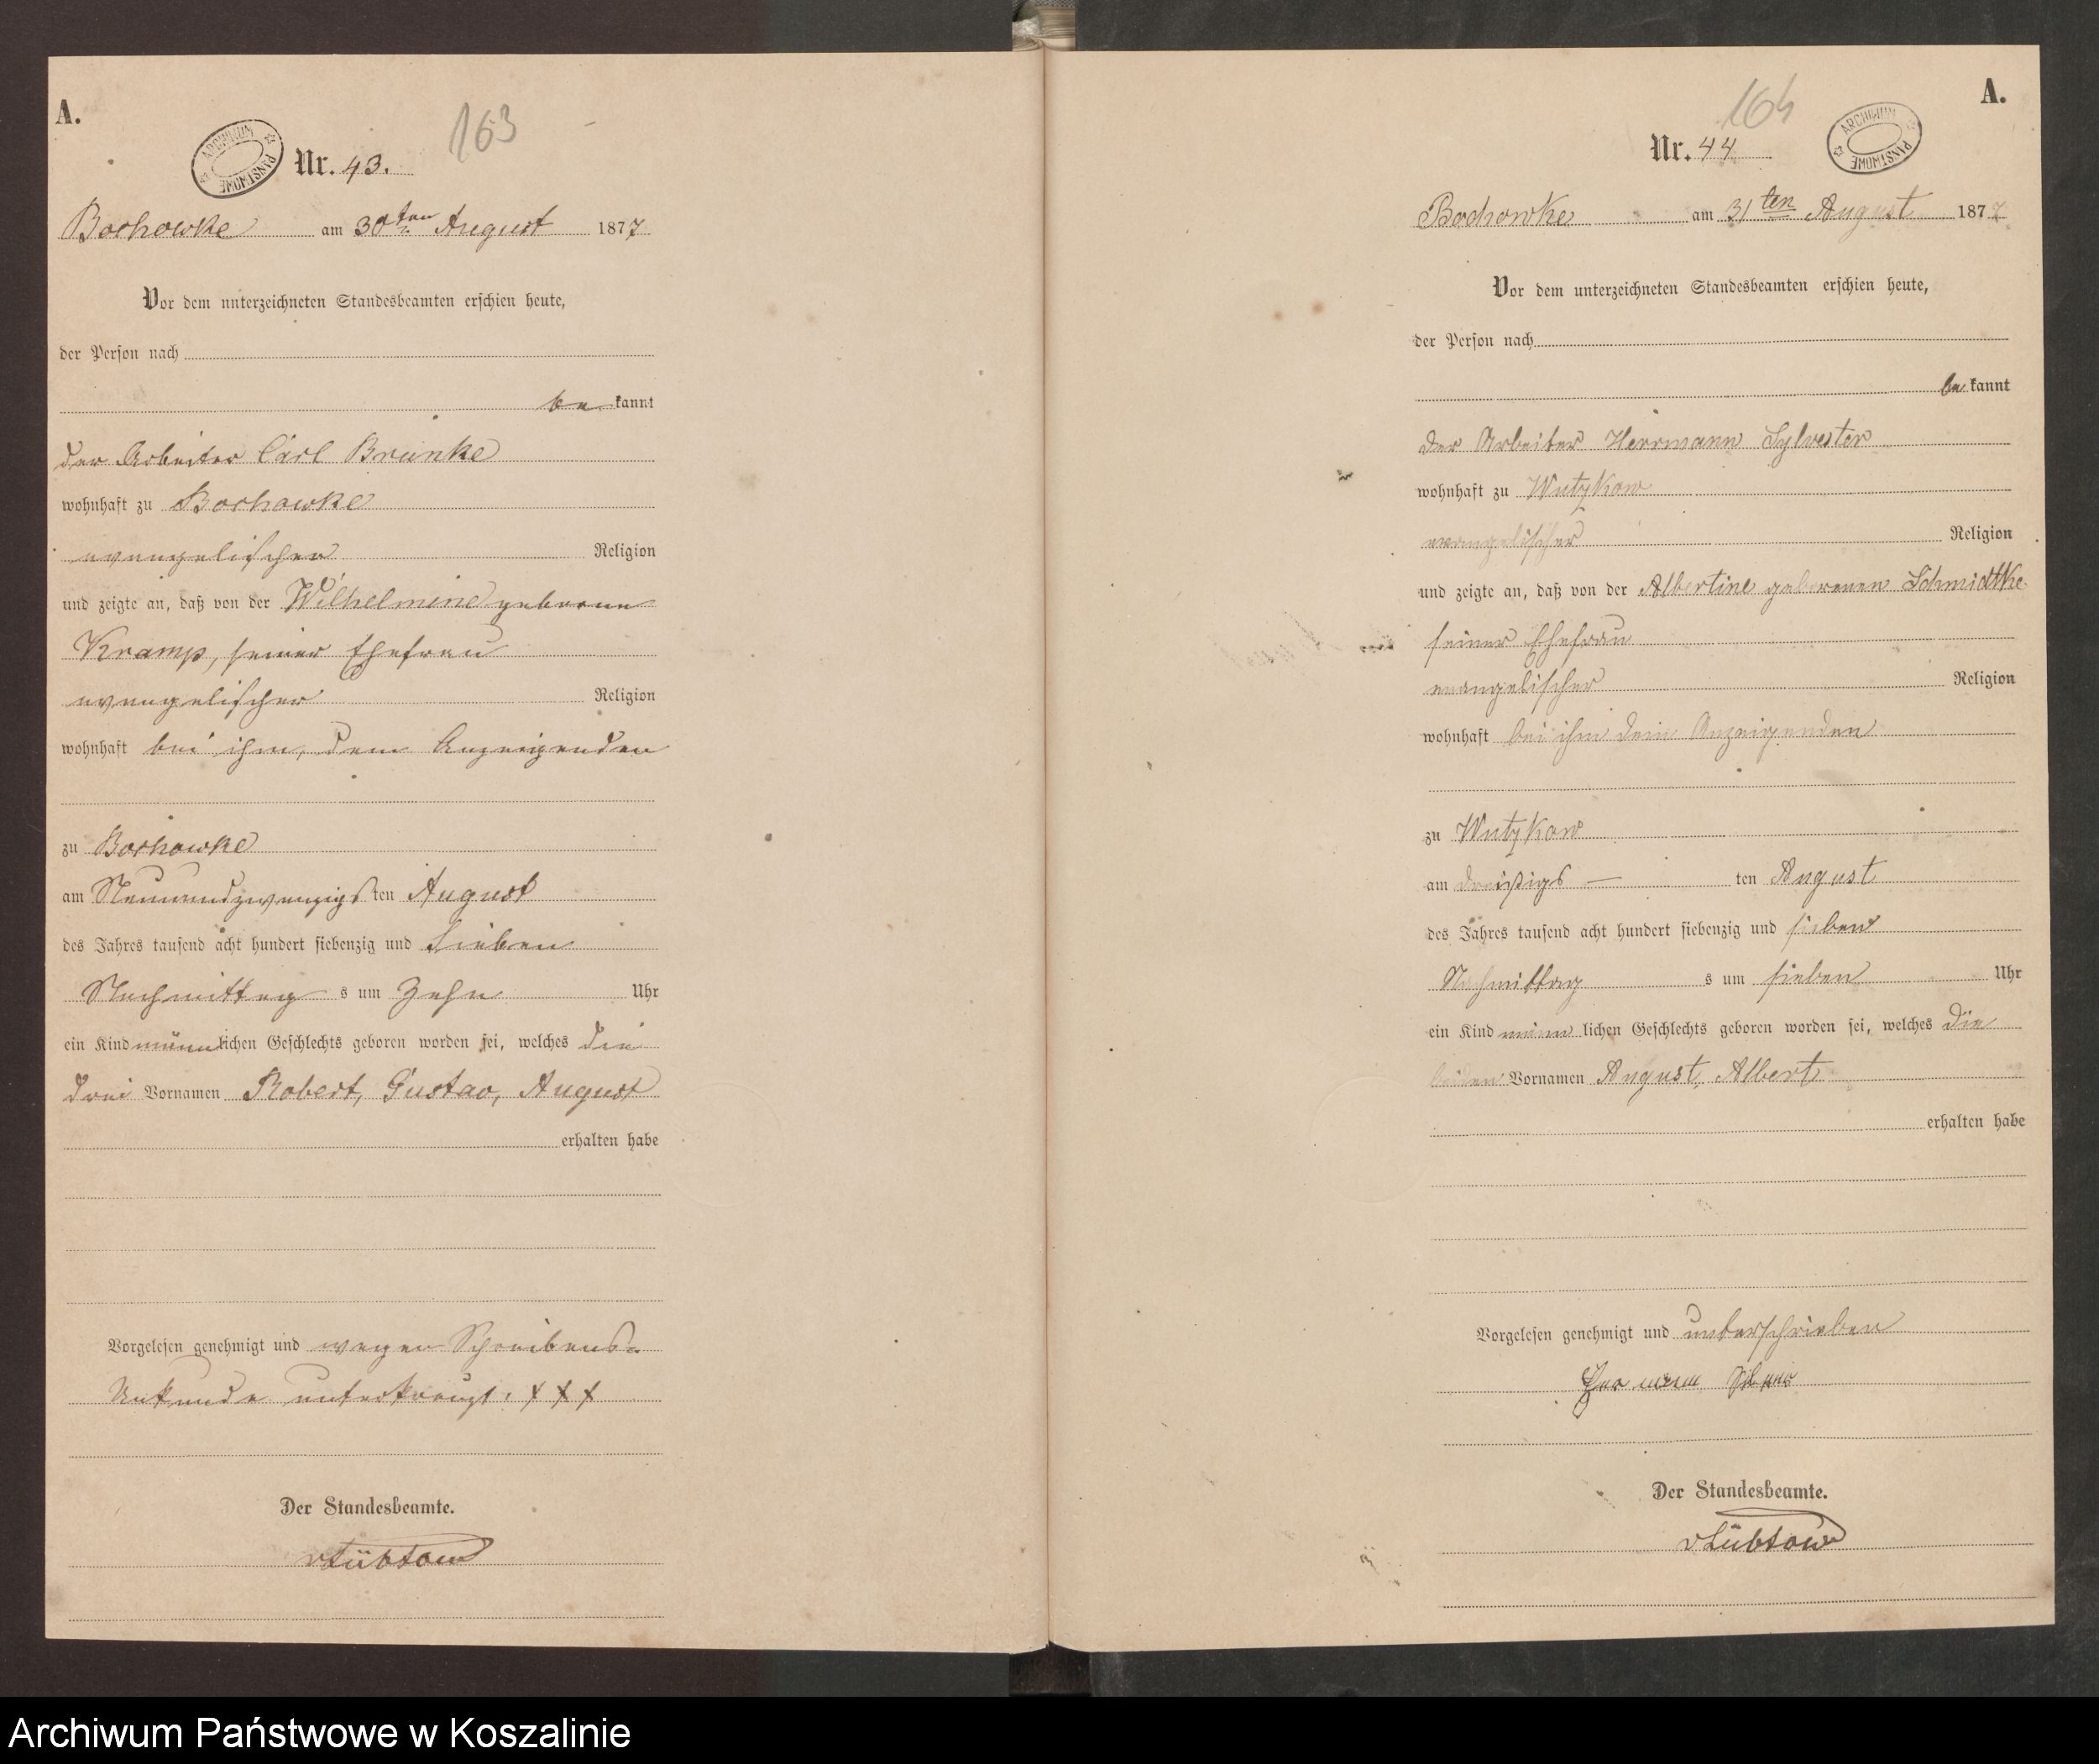 A.
163
ARCHIWUM PAŃSTWOWE
Nr. 43.
Bochowke am 30ten August 1877
Vor dem unterzeichneten Standesbeamten erschien heute,
der Person nach
be kannt
der Arbeiter Carl Brünke
wohnhaft zu Bochowke
evangelischer Religion
und zeigte an, daß von der Wilhelmine geborene
Kramp, seiner Ehefrau
evangelischer Religion
wohnhaft bei ihm, dem Anzeigenden
zu Bochowke
am Neunundzwanzigsten August
des Jahres tausend acht hundert siebenzig und sieben
Nachmittag s um Zehn Uhr
ein Kind männlichen Geschlechts geboren worden sei, welches die
drei Vornamen Robert, Gustav, August
erhalten habe
Vorgelesen genehmigt und wegen Schreibens-
Unkunde unterkreuzt: XXX
Der Standesbeamte.
vLübtow
A.
164
Nr. 44
ARCHIWUM PAŃSTWOWE
Bochowke am 31ten August 1877
Vor dem unterzeichneten Standesbeamten erschien heute,
der Person nach
be kannt
der Arbeiter Herrmann Sylvester
wohnhaft zu Wutzkow
evangelischer Religion
und zeigte an, daß von der Albertine geborenen Schmidtke
seiner Ehefrau
evangelischer Religion
wohnhaft bei ihm dem Anzeigenden
zu Wutzkow
am dreißigs — ten August
des Jahres tausend acht hundert siebenzig und sieben
Nachmittag s um sieben Uhr
ein Kind männ lichen Geschlechts geboren worden sei, welches die
beiden Vornamen August, Albert
erhalten habe
Vorgelesen genehmigt und unterschrieben
Der Standesbeamte.
vLübtow
Archiwum Państwowe w Koszalinie